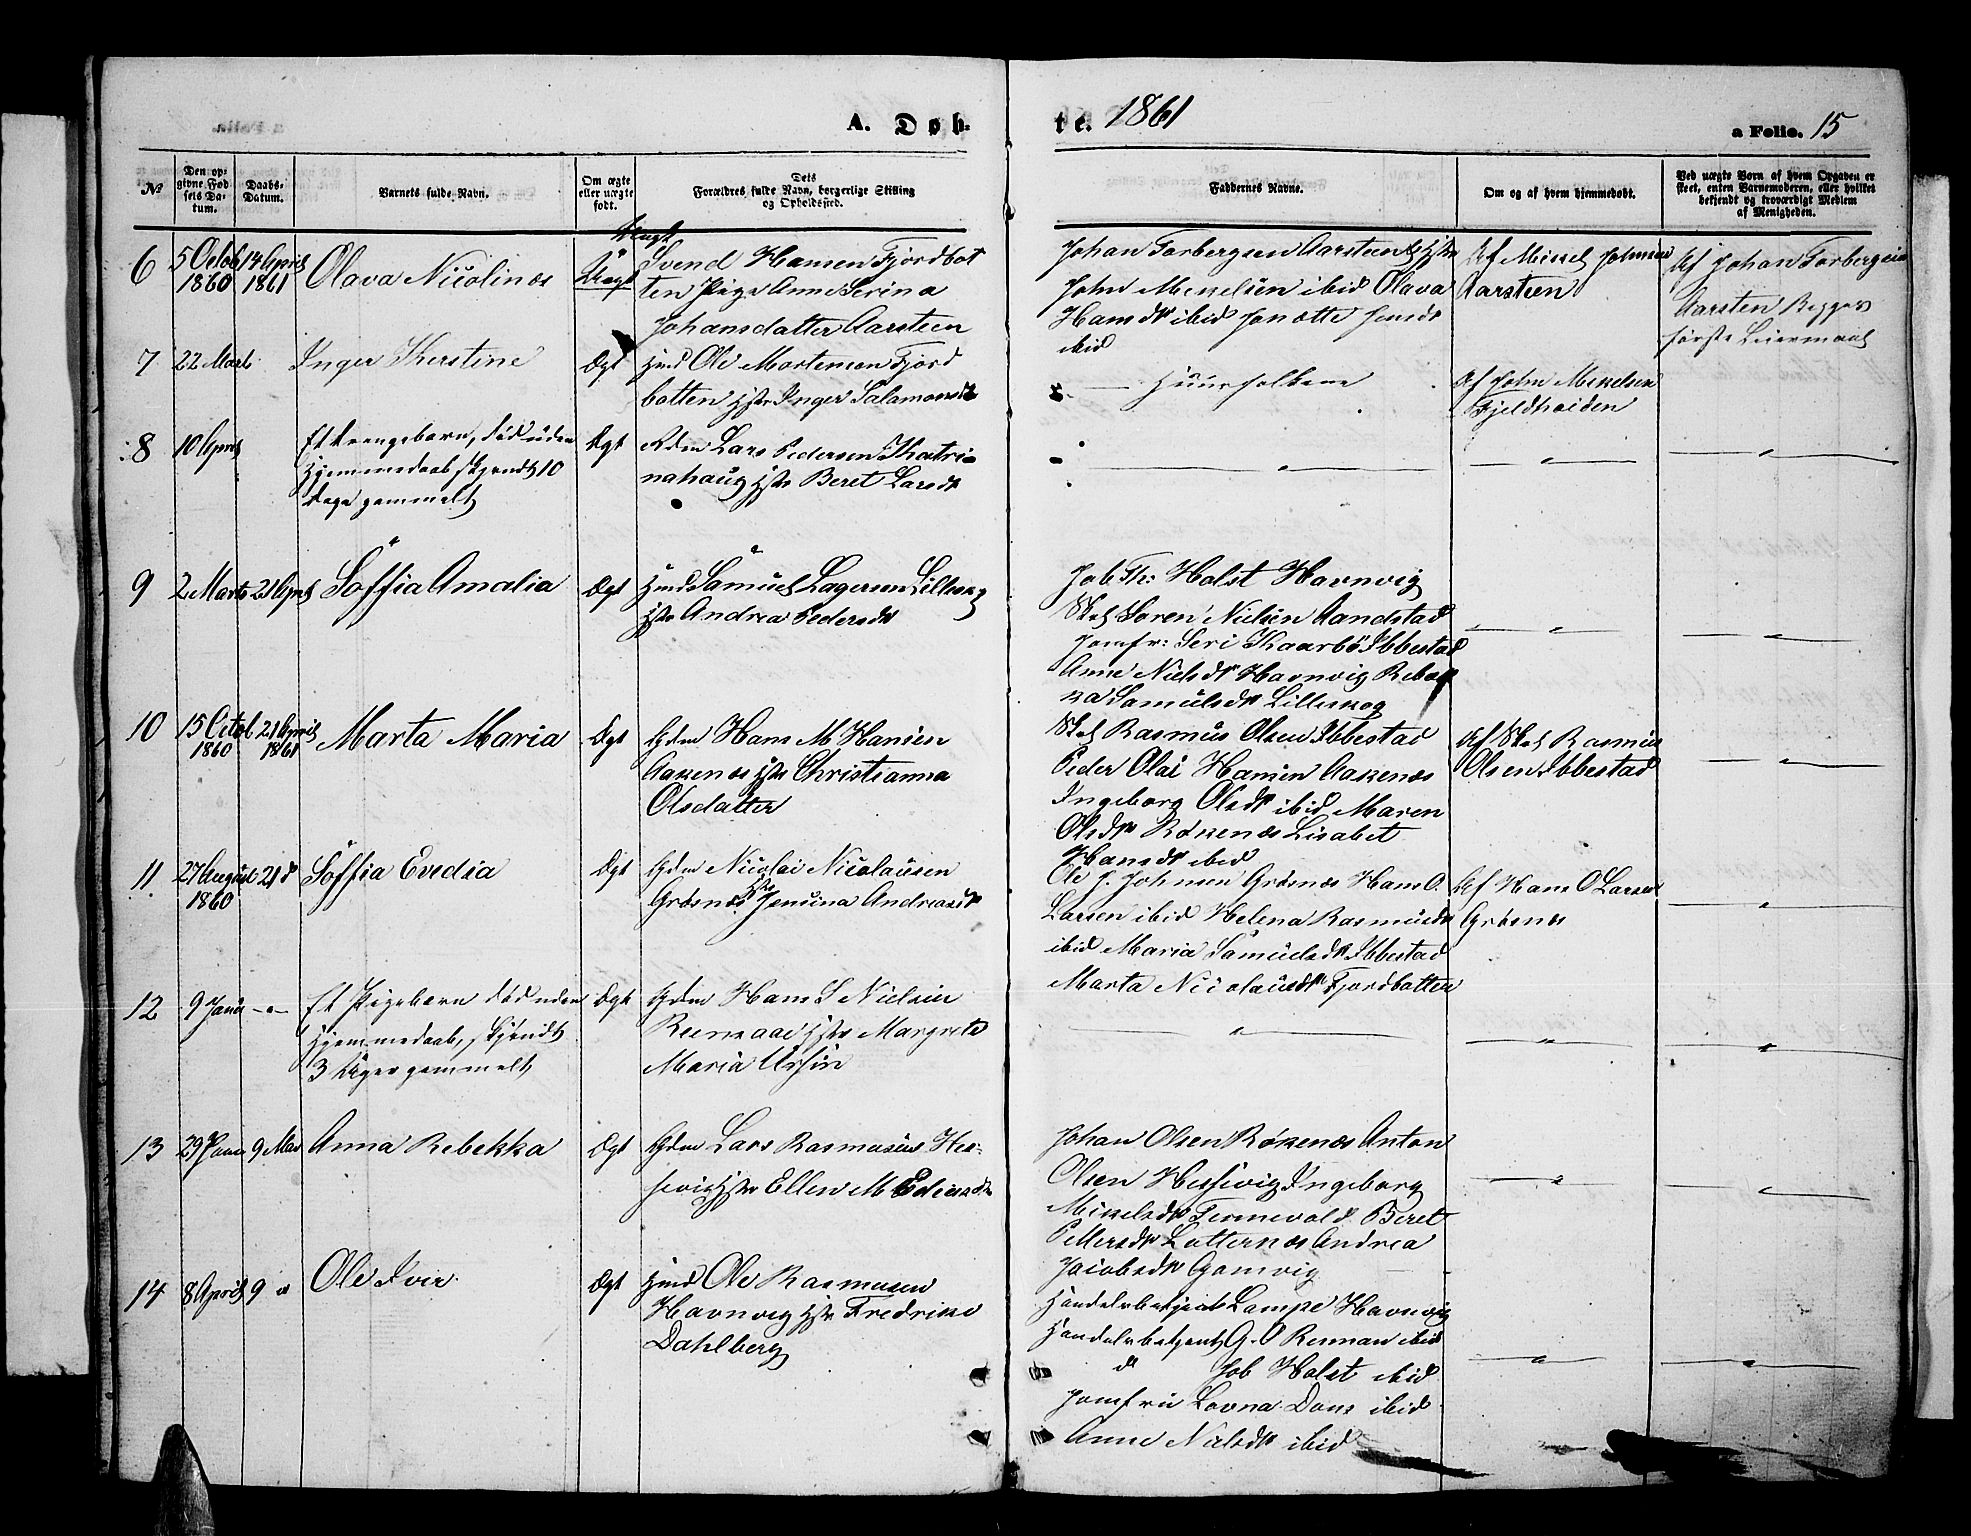 A. Døb-
te. 1861
a Folio. 15
№
Den op-
givne Fød
sels Da-
tum.
Daabs-
Datum.
Barnets fulde Navn.
Om ægte
eller uægte
født.
Dets
Forældres fulde Navn, borgerlige Stilling
og Opholdssted.
Faddernes Navne.
Om og af hvem hjemmedøbt.
Ved uægte Børn af hvem Opgaven er
skeet, enten Barnemoderen, eller hvilket
bekjendt og troværdigt Medlem
af Menigheden.
6
5 Octob
1860
14 April
1861
Olava Nicolinæ
Uægt
Uægt
Svend Hansen Fjordbot
ten Pige Anne Serina
Johansdatter Aarsteen
Johan Torbergsen Aarsteen
John Mikelsen ibid Olava
Hansdtr ibid Jonætte Jensdr
ibid
Af Mikel Johnsen
Aarsteen
Af Johan Torbergsen
Aarsten Begges
første Leiermaal
7
22 Marts
Inger Kherstine
Ægt
Hmd Ole Mortensen Fjord
botten Hstr Inger Salamonsdr
Af John Mikelsen
Fjeldheiden
8
10 April
Et Drengebarn, død uden
Hjemmedaab, skjendt 10
Dage gammelt
Ægt
Lars Pedersen Khatri-
nahaug Hstr Beret Larsdr
9
2 Marts
21 April
Søffia Amalia
Ægt
Hmd Samuel Lagersen Lilleskog
Hstr Andrea Pedersdr
Job Th: Holst Havnvig
Skol Søren Nielsen Aandstad
Jomfr: Seri Kaarbø Ibbestad
Anne Nielsdr Havnvig Rebek
ka Samuelsdr Lilleskog
10
15 Octob
1860
21 April
1861
Marta Maria
Ægt
Gdm Hans M Hansen
Aakenæs Hstr Christianna
Olsdatter
Skol Rasmus Olsen Ibbestad
Peder Olai Hansen Aakenæs
Ingeborg Olsdr ibid Maren
Olsdr Røkenæs Lisabet
Hansdr ibid
Af Skol Rasmus
Olsen Ibbestad
11
27 August
1860
21 d
Søffia Evedia
Ægt
Gdm Nicolai Nicolausen
Grøsnæs Hstr Jenuina Andreasdr
Ole J. Johnsen Grøsnæs Hans O.
Larsen ibid Helena Rasmusdr
ibid Maria Samuelsdr Ibbestad
Marta Nicolausdr Fjordbotten
Af Hans O Larsen
Grøsnæs
12
9 Janu
Et Pigebarn død uden
Hjemmedaab, skjendt
3 Uger gammelt
Ægt
Gdm Hans S Nielsen
Reensaae Hstr Margrete
Maria Ursin
13
29 Janu
9 Mai
Anna Rebekka
Ægt
Gdm Lars Rasmusen Hes-
sevig Hstr Ellen M
Johan Olsen Røkenæs Anton
Olsen Hessevig Ingeborg
Mikelsdr Tennevold Beret
Pettersdr Lotternæs Andrea
Jacobsdr Gamvig
14
8 April
9 "
Ole Iver
Ægt
Hmd Ole Rasmusen
Havnvig Hstr Fredrike
Dahlberg
Handelsbetjent Lampe Havnvig
Handelsbetjent G. O Renman ibid
d Job Holst ibid
Jomfru Lovna Dons ibid
Anne Nielsdr ibid